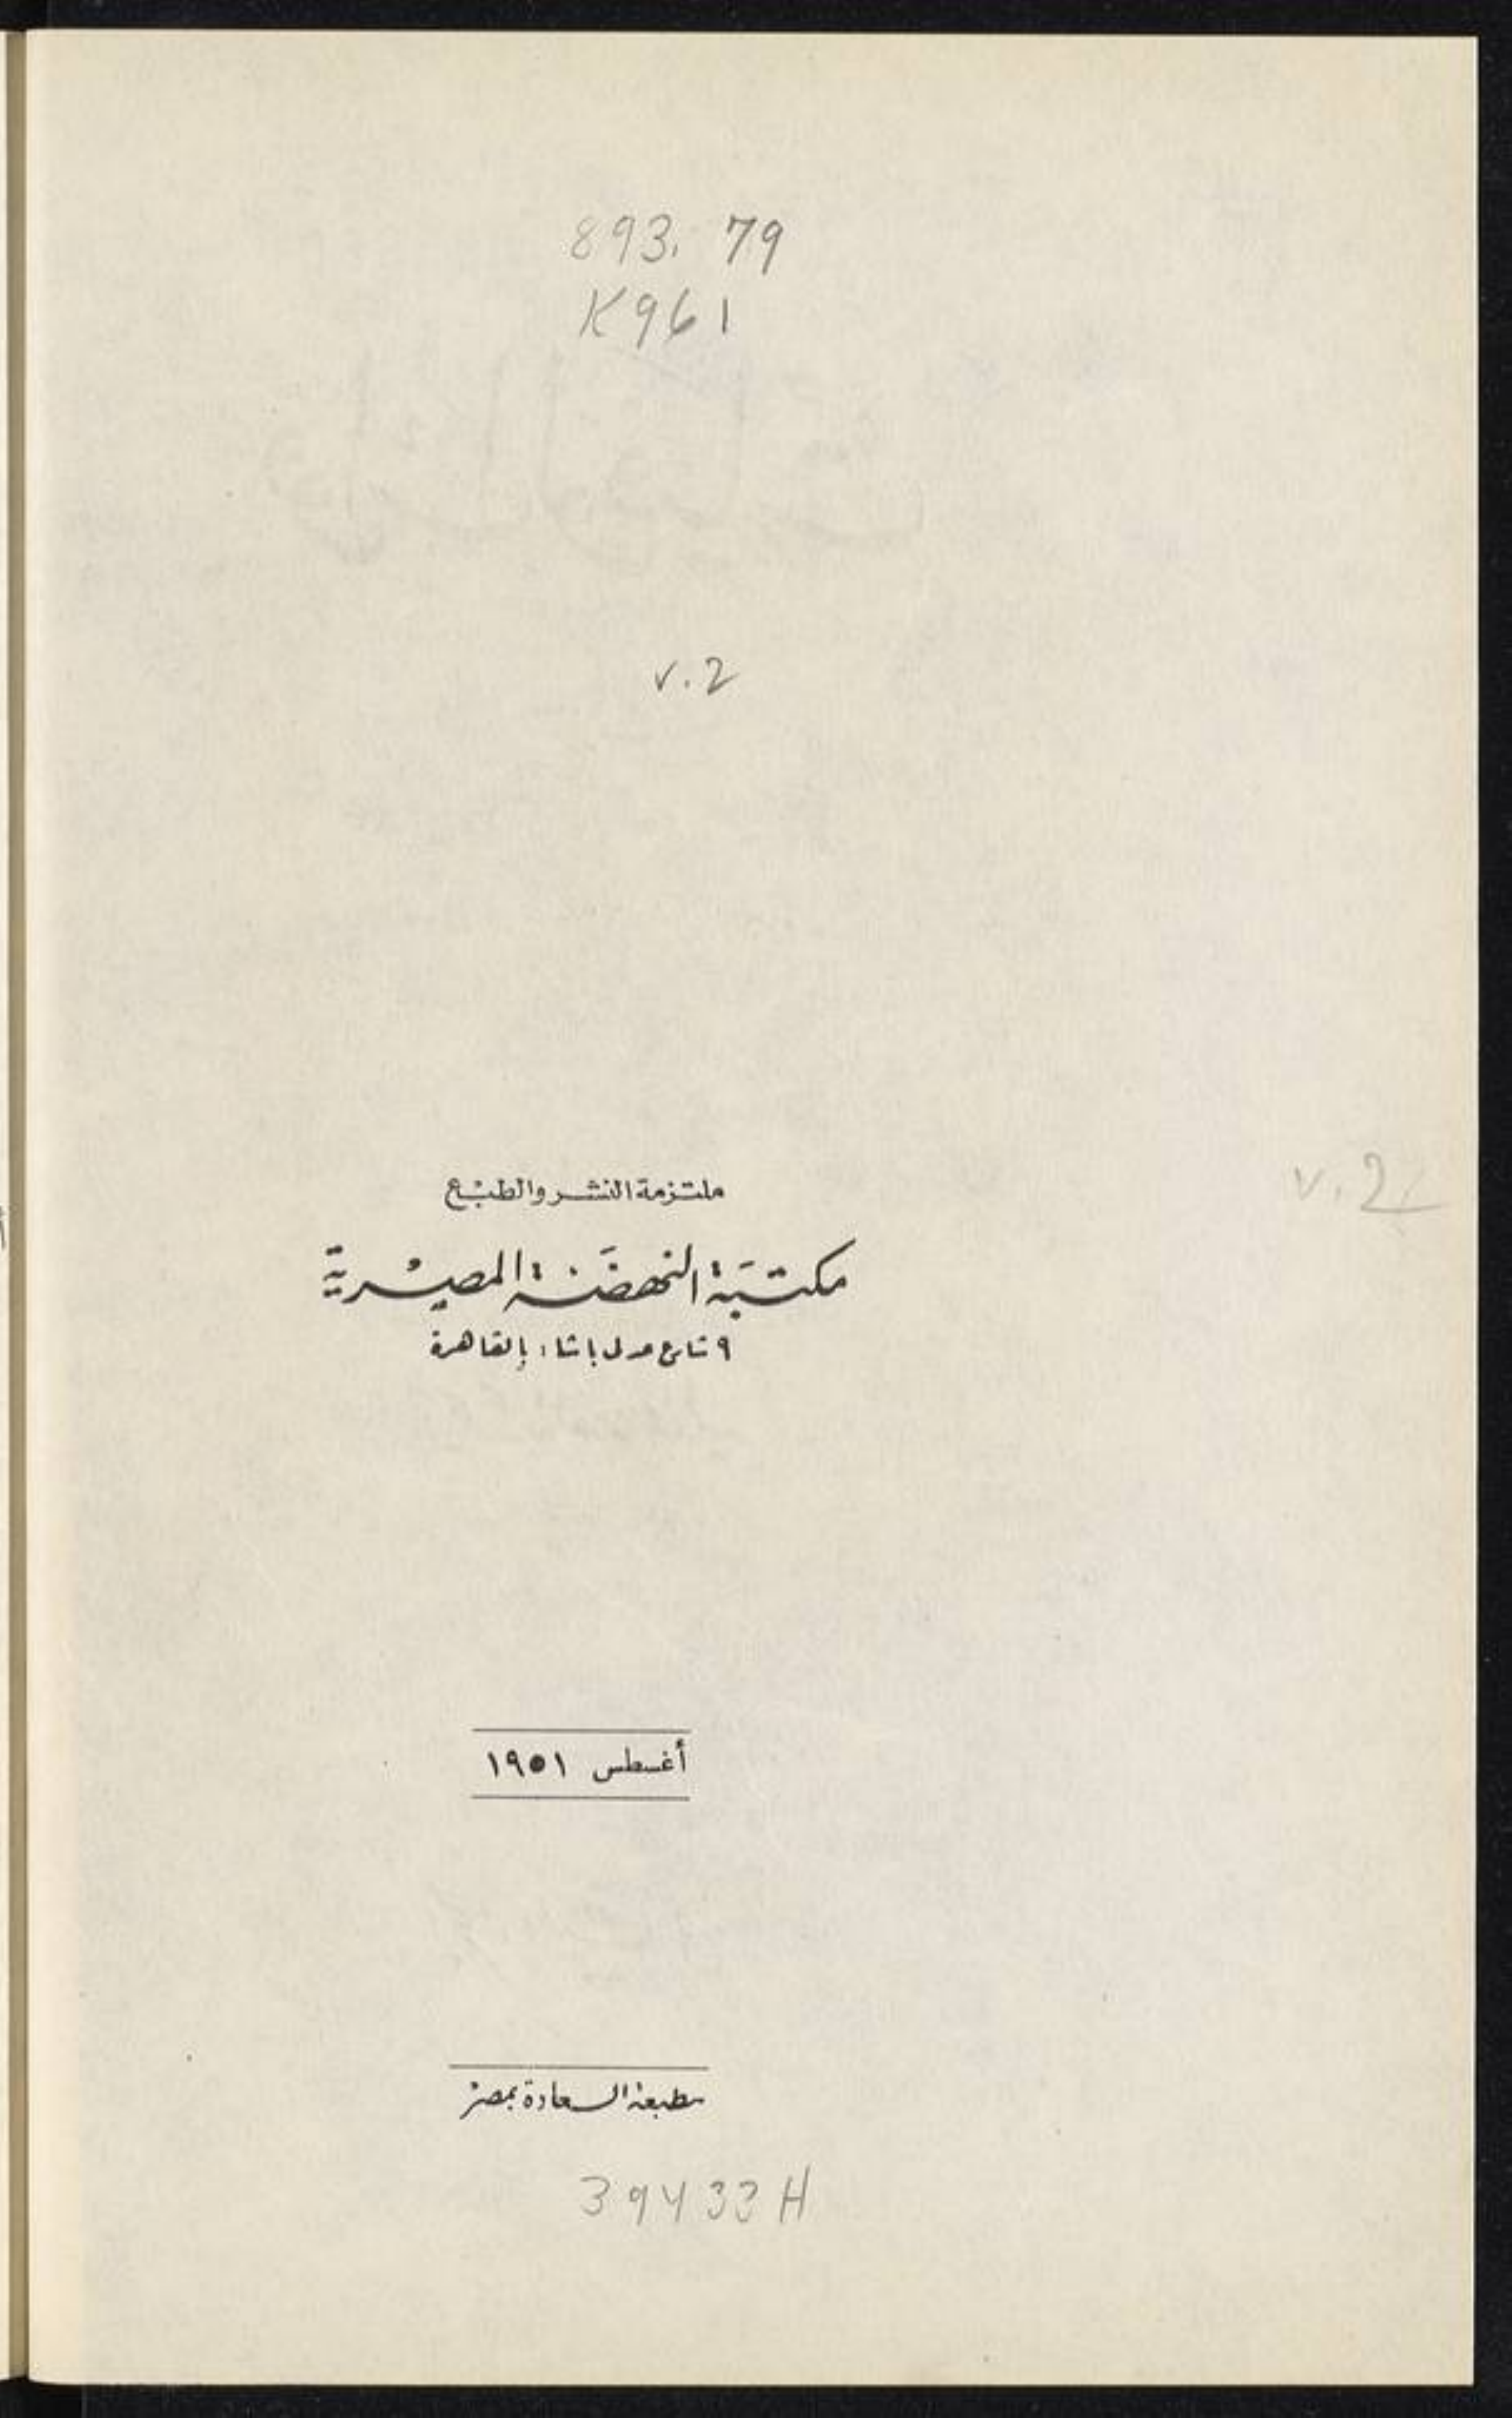 893.79
K961
v.2
ملتزمة النشر والطبع
v.2
مكتبة النهضة المصرية
٩ شارع عدلى باشا، بالقاهرة
أغسطس ١٩٥١
مطبعة السعادة بمصر
39433H